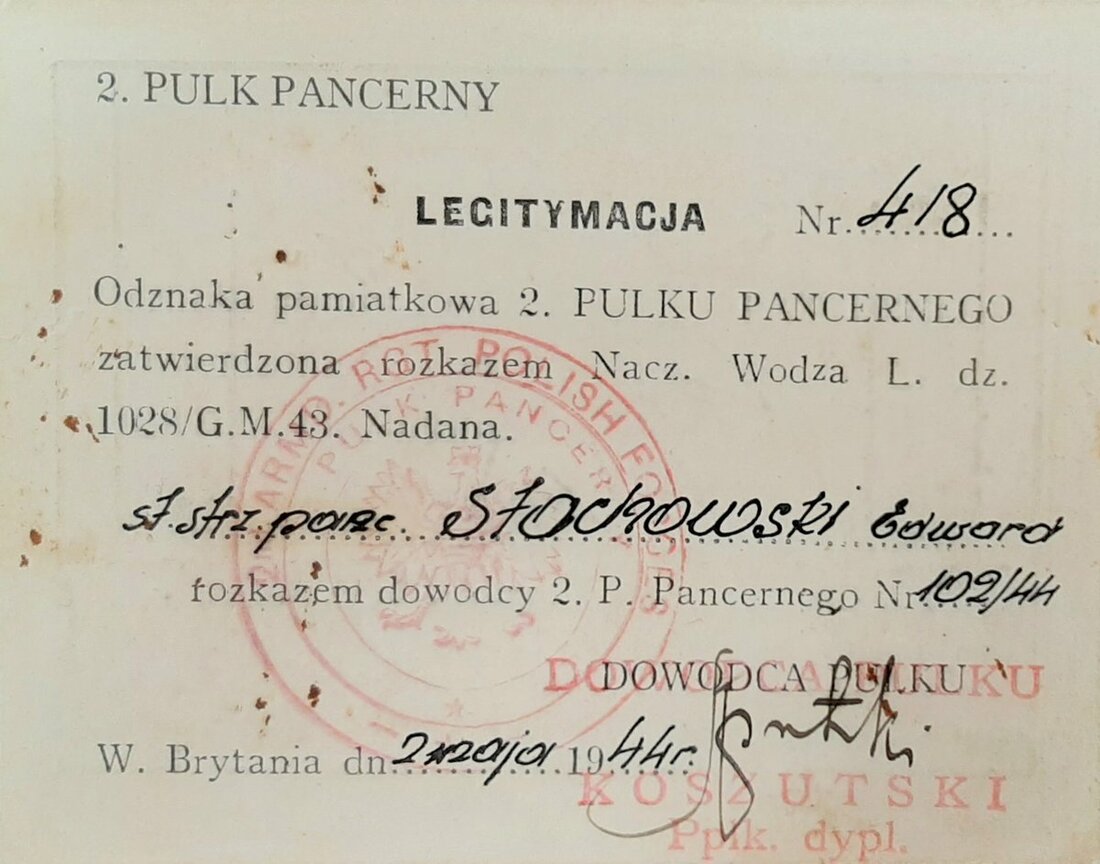 2. PULK PANCERNY
LEGITYMACJA Nr. 418
Odznaka pamiatkowa 2. PULKU PANCERNEGO
zatwierdzona rozkazem Nacz. Wodza L. dz.
1028/G.M.43. Nadana.
st. strz. panc. Stachowski Edward
rozkazem dowodcy 2. P. Pancernego Nr. 102/44
DOWODCA PULKU
DOWODCA PULKU
W. Brytania dn. 2 maja 1944 r.
KOSZUTSKI
Pplk. dypl.
ARMD. RGT. POLISH FORCES
PULK PANCERNY